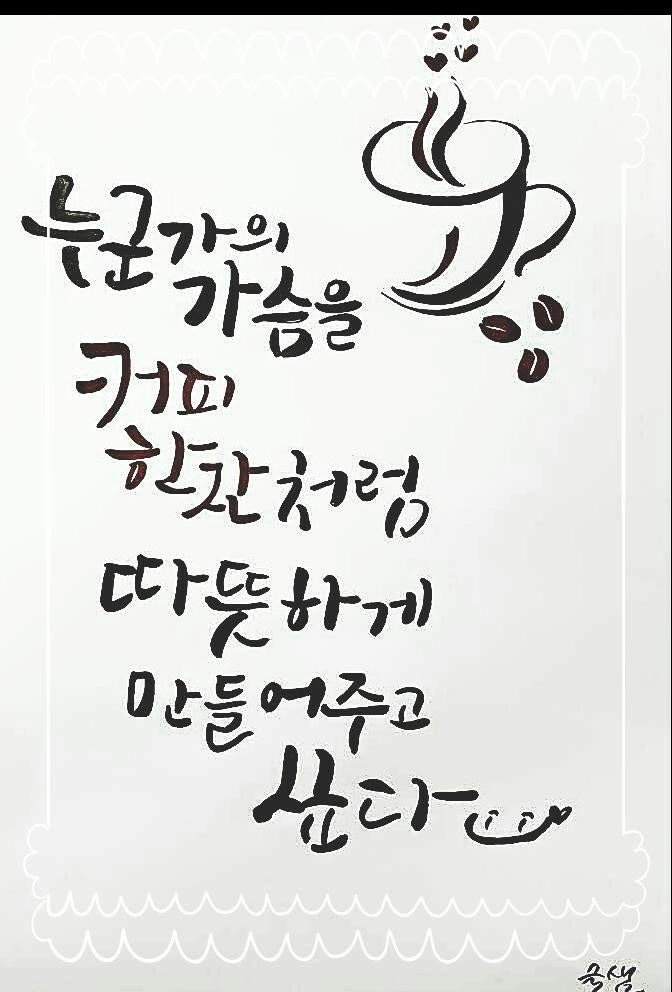 누군가의
가슴을
커피
한잔처럼
따뜻하게
만들어주고
싶다